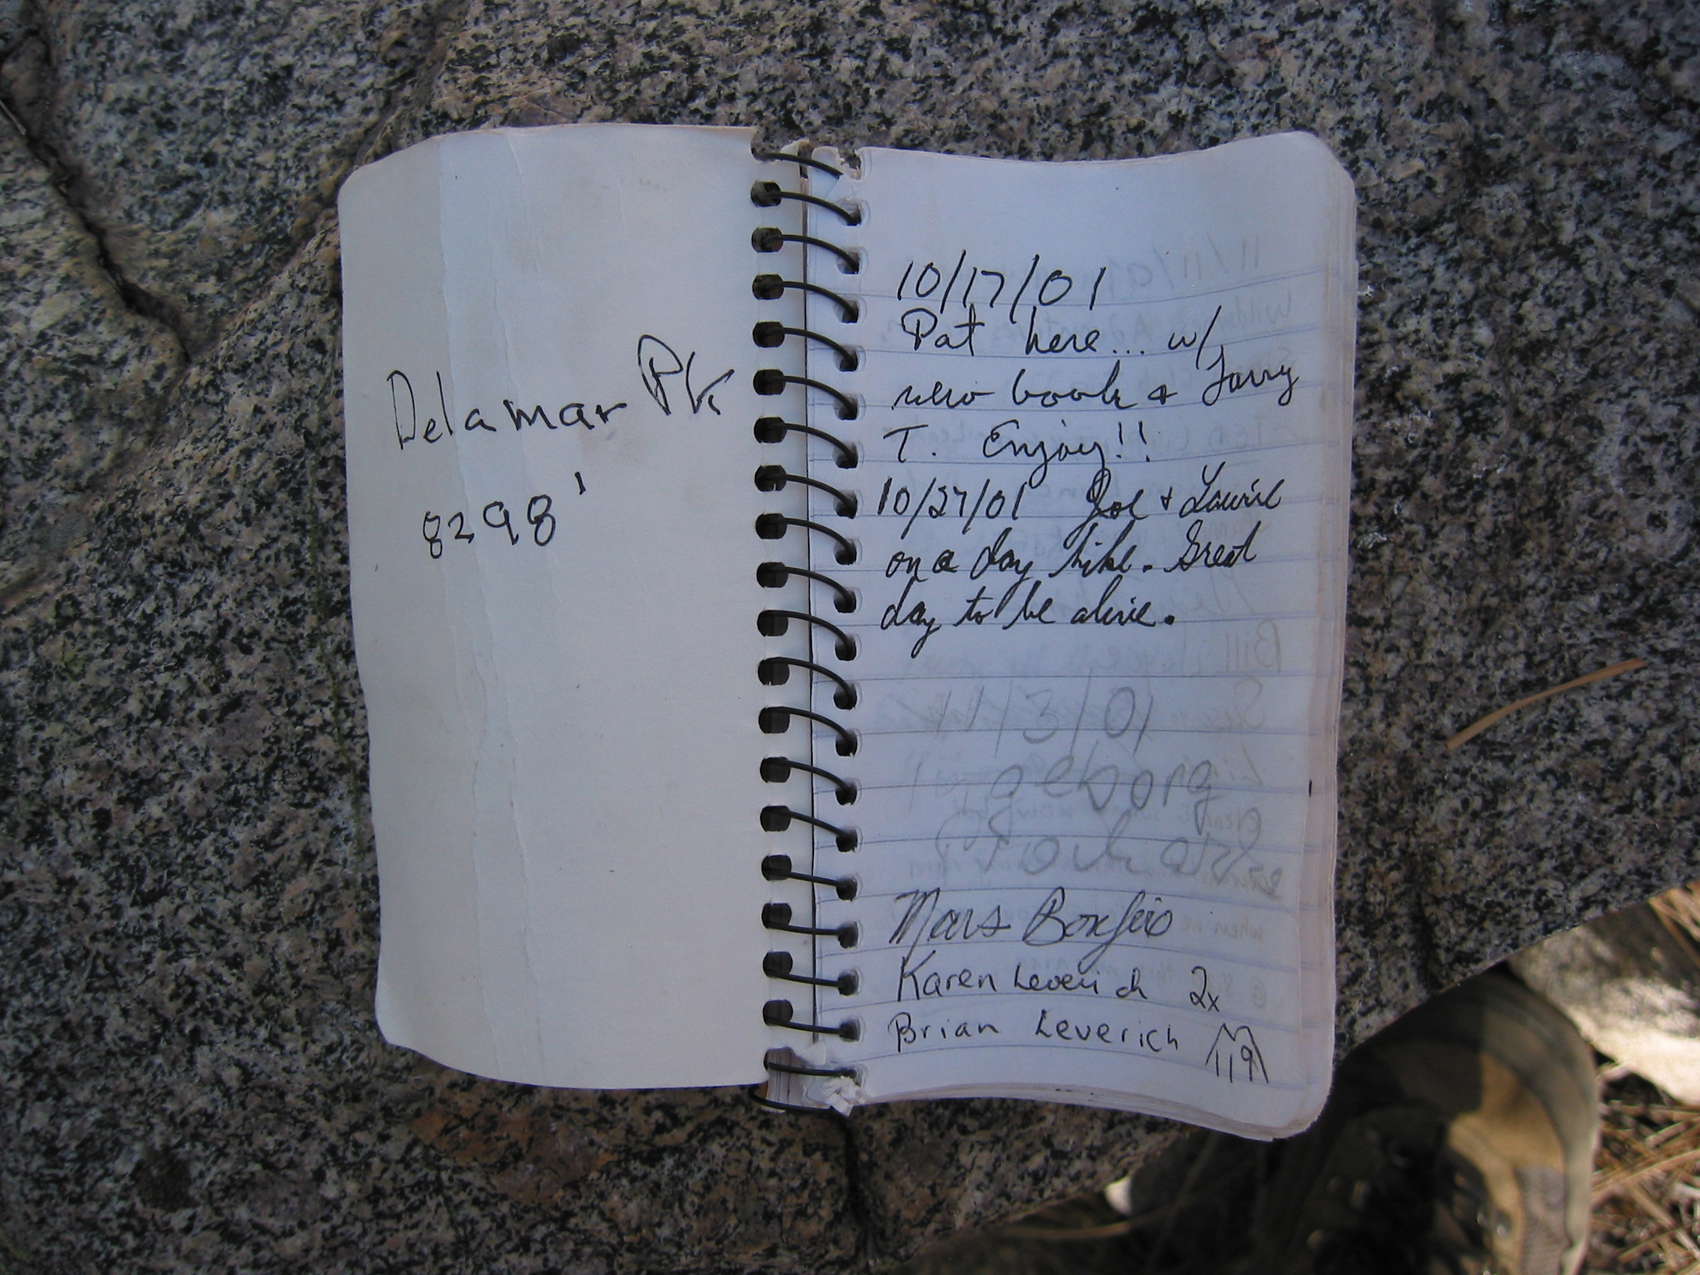 Delamar Pk
8298'
10/17/01
Pat here... w/
new book & Larry
T. Enjoy!!
10/27/01 Joe + Laurie
on a day hike. Great
day to be alive.
11/3/01
Mars
Karen Leverich 2x
Brian Leverich 119